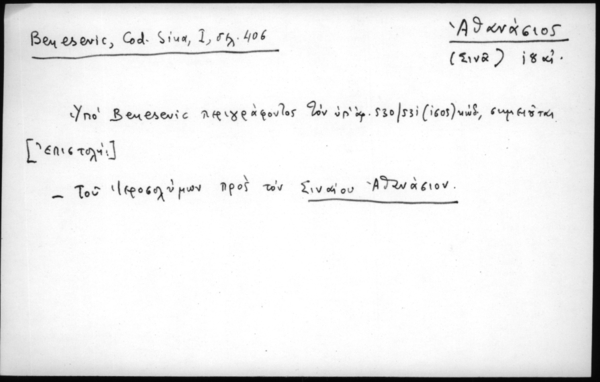 Benesevic, Cod. Sina, I, σελ. 406
Ἀθανάσιος
(Σινᾶ) ιηʹ αἰ.
Ὑπὸ Benesevic περιγράφοντος τὸν ὑπ' ἀρ. 530/531 (1503) κώδ, σημειοῦται
[Ἐπιστολή:]
— Τοῦ Ἱεροσολύμων πρὸς τὸν Σιναίου Ἀθανάσιον.